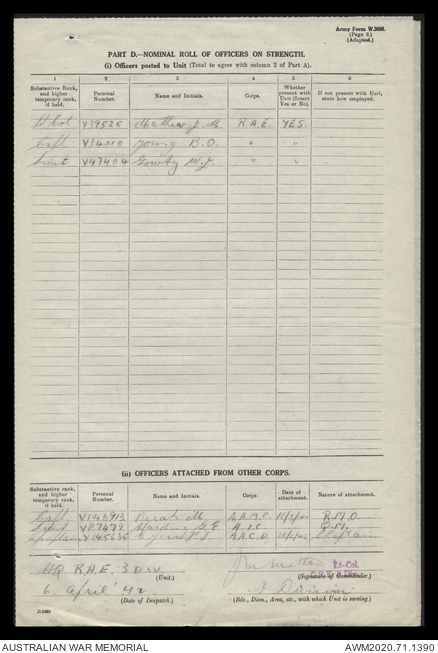 Army Form W.3008.
(Page 2.)
(Adapted.)
PART D.—NOMINAL ROLL OF OFFICERS ON STRENGTH.
(i) Officers posted to Unit (Total to agree with column 2 of Part A).
1 2 3 4 5 6
Substantive Rank, and higher temporary rank, if held. Personal Number. Name and Initials. Corps. Whether present with Unit (Insert Yes or No). If not present with Unit, state how employed.
Lt Col V39525 Mathew J. M. R.A.E. YES.
Capt V34010 Young B.O. " "
Lieut V47404 W.J. " "
(ii) OFFICERS ATTACHED FROM OTHER CORPS.
Substantive rank, and higher temporary rank, if held. Personal Number. Name and Initials. Corps. Date of attachment. Nature of attachment.
Capt. V146913 M. A.A.M.C. R.M.O.
Lieut V87479 Harding G.E. Q.M.
Chaplain V145635 A.A.C.D. Chaplain
HQ R.A.E. 3 DIV Lt-Col
(Unit.) (Signature of Commander.)
6 April '42 3 Division
(Date of Despatch.) (Bde., Divn., Area, etc., with which Unit is serving.)
AUSTRALIAN WAR MEMORIAL AWM2020.71.1390